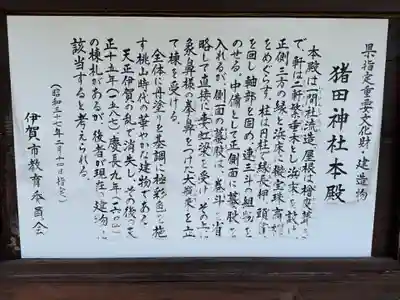 県指定重要文化財・建造物
猪田神社本殿
本殿は一間社流造、屋根は檜皮葺き
で、軒は二軒繁垂木とし浜床を設け
正側三方の縁、浜床に擬宝珠高欄
をめぐらす。柱は円柱で縁長押、頭貫
を回し軸部を固め連三斗の組物を
のせる。中備として正側面に蟇股を
入れるが側面の蟇股は巻斗を省
略して直接に妻虹梁を受け、その上に
象鼻様の拳鼻をつけた大瓶束を立
て棟を受ける。
全体に丹塗りを基調に極彩色を施
す桃山時代の華やかな建物である。
天正伊賀の乱で消失し、その後天
正十五年(一五八七)慶長九年(一六〇四)
の棟札があるが、後者が現在の建物に
該当すると考えられる。
(昭和三十二年二月十四日指定)
伊賀市教育委員会